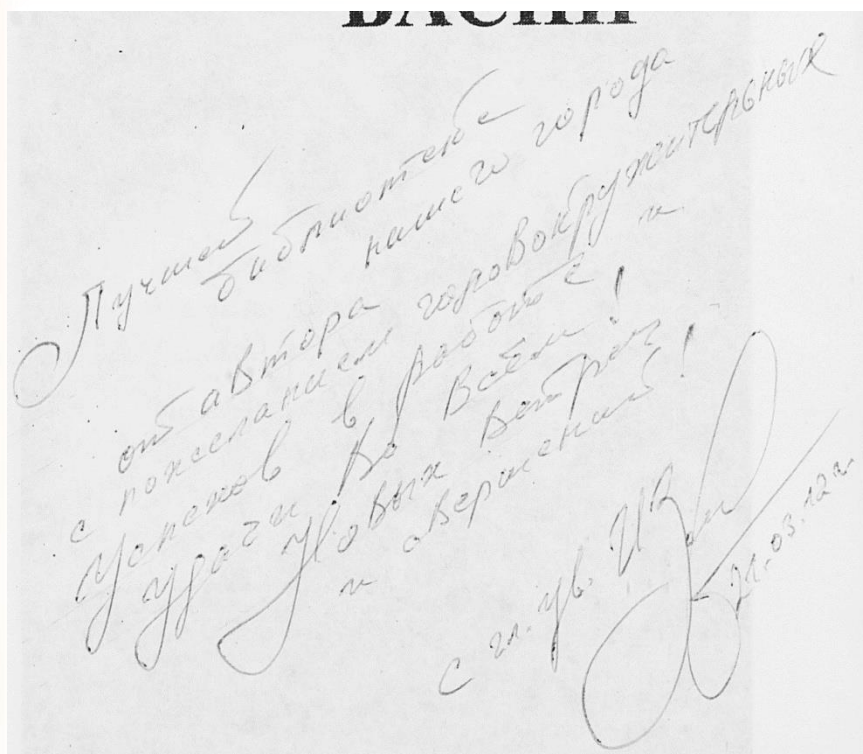 БАСНИ
Лучшей
библиотеке
нашего города
от автора
с пожеланием головокружительных
Успехов в работе и
удачи во всём!
Новых встреч
и свершений!
с гл. ув.
21.03.12г.